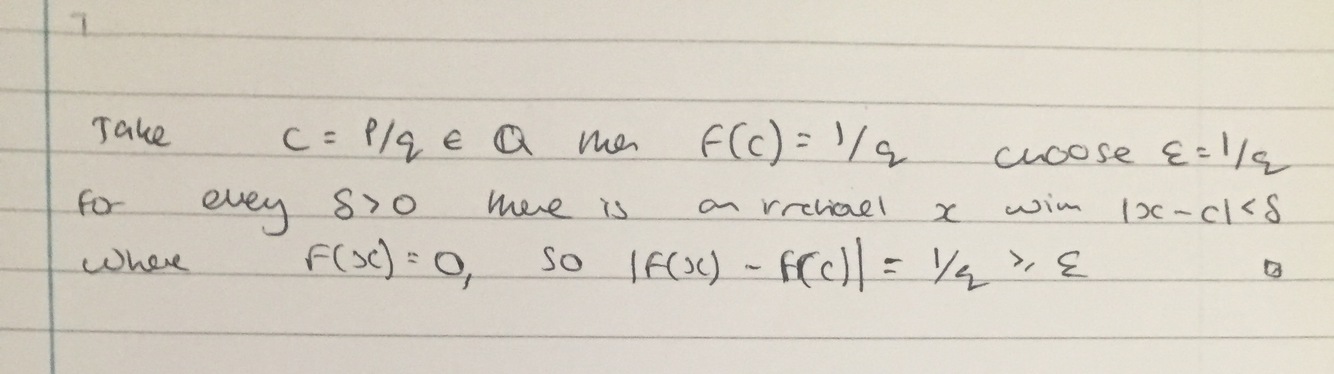 Take c = p/q ∈ Q then f(c) = 1/q choose ε = 1/q
for every δ>0 there is an irrational x with |x-c|<δ
where f(x) = 0, so |f(x) - f(c)| = 1/q ≥ ε □